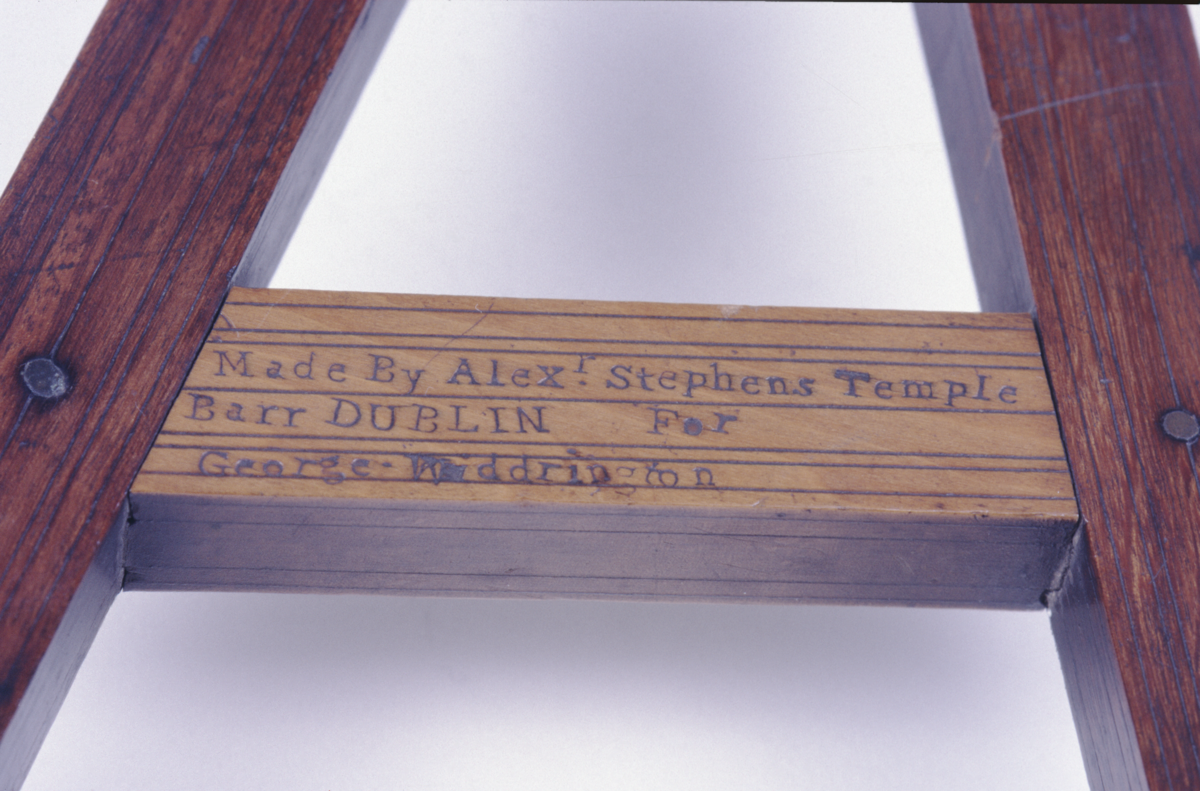 Made By Alex.ʳ Stephens Temple
Barr DUBLIN For
George Widdrington